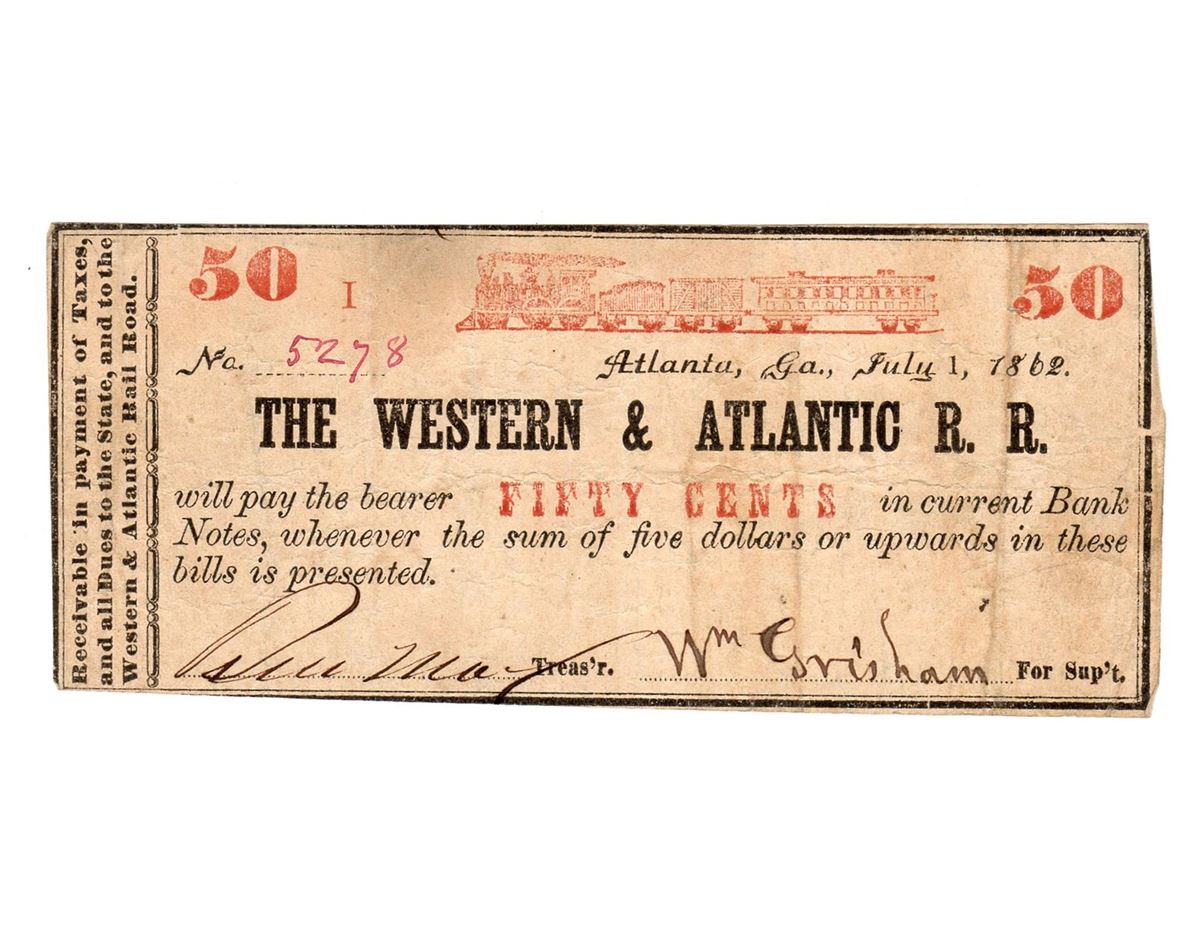 Receivable in payment of Taxes,
and all Dues to the State, and to the
Western & Atlantic Rail Road.
50 I 50
No. 5278 Atlanta, Ga., July 1, 1862.
THE WESTERN & ATLANTIC R. R.
will pay the bearer FIFTY CENTS in current Bank
Notes, whenever the sum of five dollars or upwards in these
bills is presented.
Ben May Treas'r. Wm Grisham For Sup't.